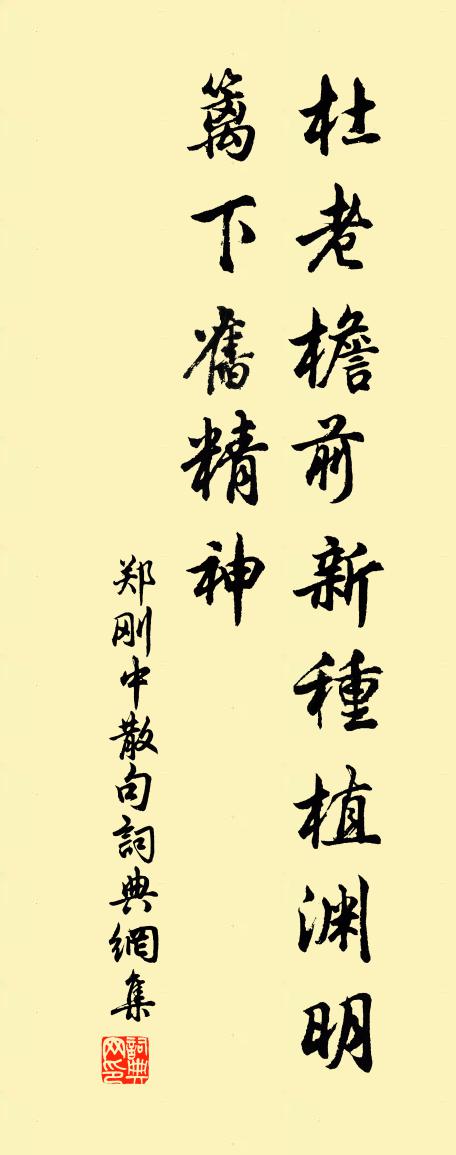 杜老檐前新種植渊明
篱下舊精神
郑刚中散句詞典網集
詞典网印